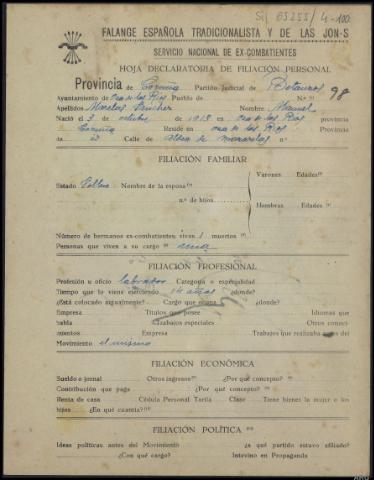 83255/4-100
FALANGE ESPAÑOLA TRADICIONALISTA Y DE LAS JON-S
SERVICIO NACIONAL DE EX-COMBATIENTES
HOJA DECLARATORIA DE FILIACIÓN PERSONAL
Provincia de Coruña Partido Judicial de Betanzos
Ayuntamiento de Oza de los Rios Pueblo de N.º 98
Apellidos Sanchez Nombre Manuel
Nació el 3 octubre de 1913 en Oza de los Rios provincia
Coruña Reside en Oza de los Rios provincia
de Calle de Aldea de
FILIACIÓN FAMILIAR
Estado Soltero Nombre de la esposa
Varones Edades
n.º de hijos
Hembras Edades
Número de hermanos ex-combatientes, vivos 1 muertos
Personas que viven a su cargo una
FILIACIÓN PROFESIONAL
Profesión u oficio labrador Categoría o especialidad
Tiempo que lo viene ejerciendo 14 años ¿dónde?
¿Está colocado actualmente? Cargo que ocupa ¿dónde?
Empresa Títulos que posee Idiomas que
habla Trabajos especiales Otros conoci-
mientos Empresa Trabajos que realizaba antes del
Movimiento el mismo
FILIACIÓN ECONÓMICA
Sueldo o jornal Otros ingresos ¿Por qué concepto?
Contribución que paga ¿Por qué concepto?
Renta de casa Cédula Personal Tarifa Clase Tiene bienes la mujer o los
hijos ¿En qué cuantía?
FILIACIÓN POLÍTICA
Ideas políticas antes del Movimiento ¿a qué partido estuvo afiliado?
¿Con qué cargo? Intervino en Propaganda